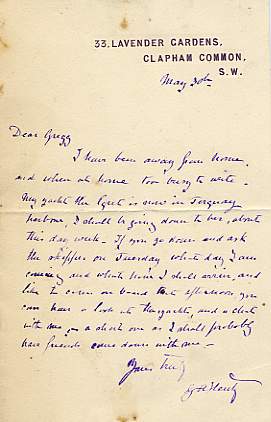 33, LAVENDER GARDENS,
CLAPHAM COMMON,
S.W.
May 30th
Dear Gregg
I have been away from home,
and when at home too busy to write -
My yacht the Egret is now in Torquay
harbour, I shall be going down to her, about
this day week - If you go down and ask
the skipper on Tuesday what day I am
coming and what hour I shall arrive, and
like to come on board that afternoon you
can have a look at the yacht, and a chat
with me, - a short one as I shall probably
have friends come down with me -
Yours truly
G A Henty